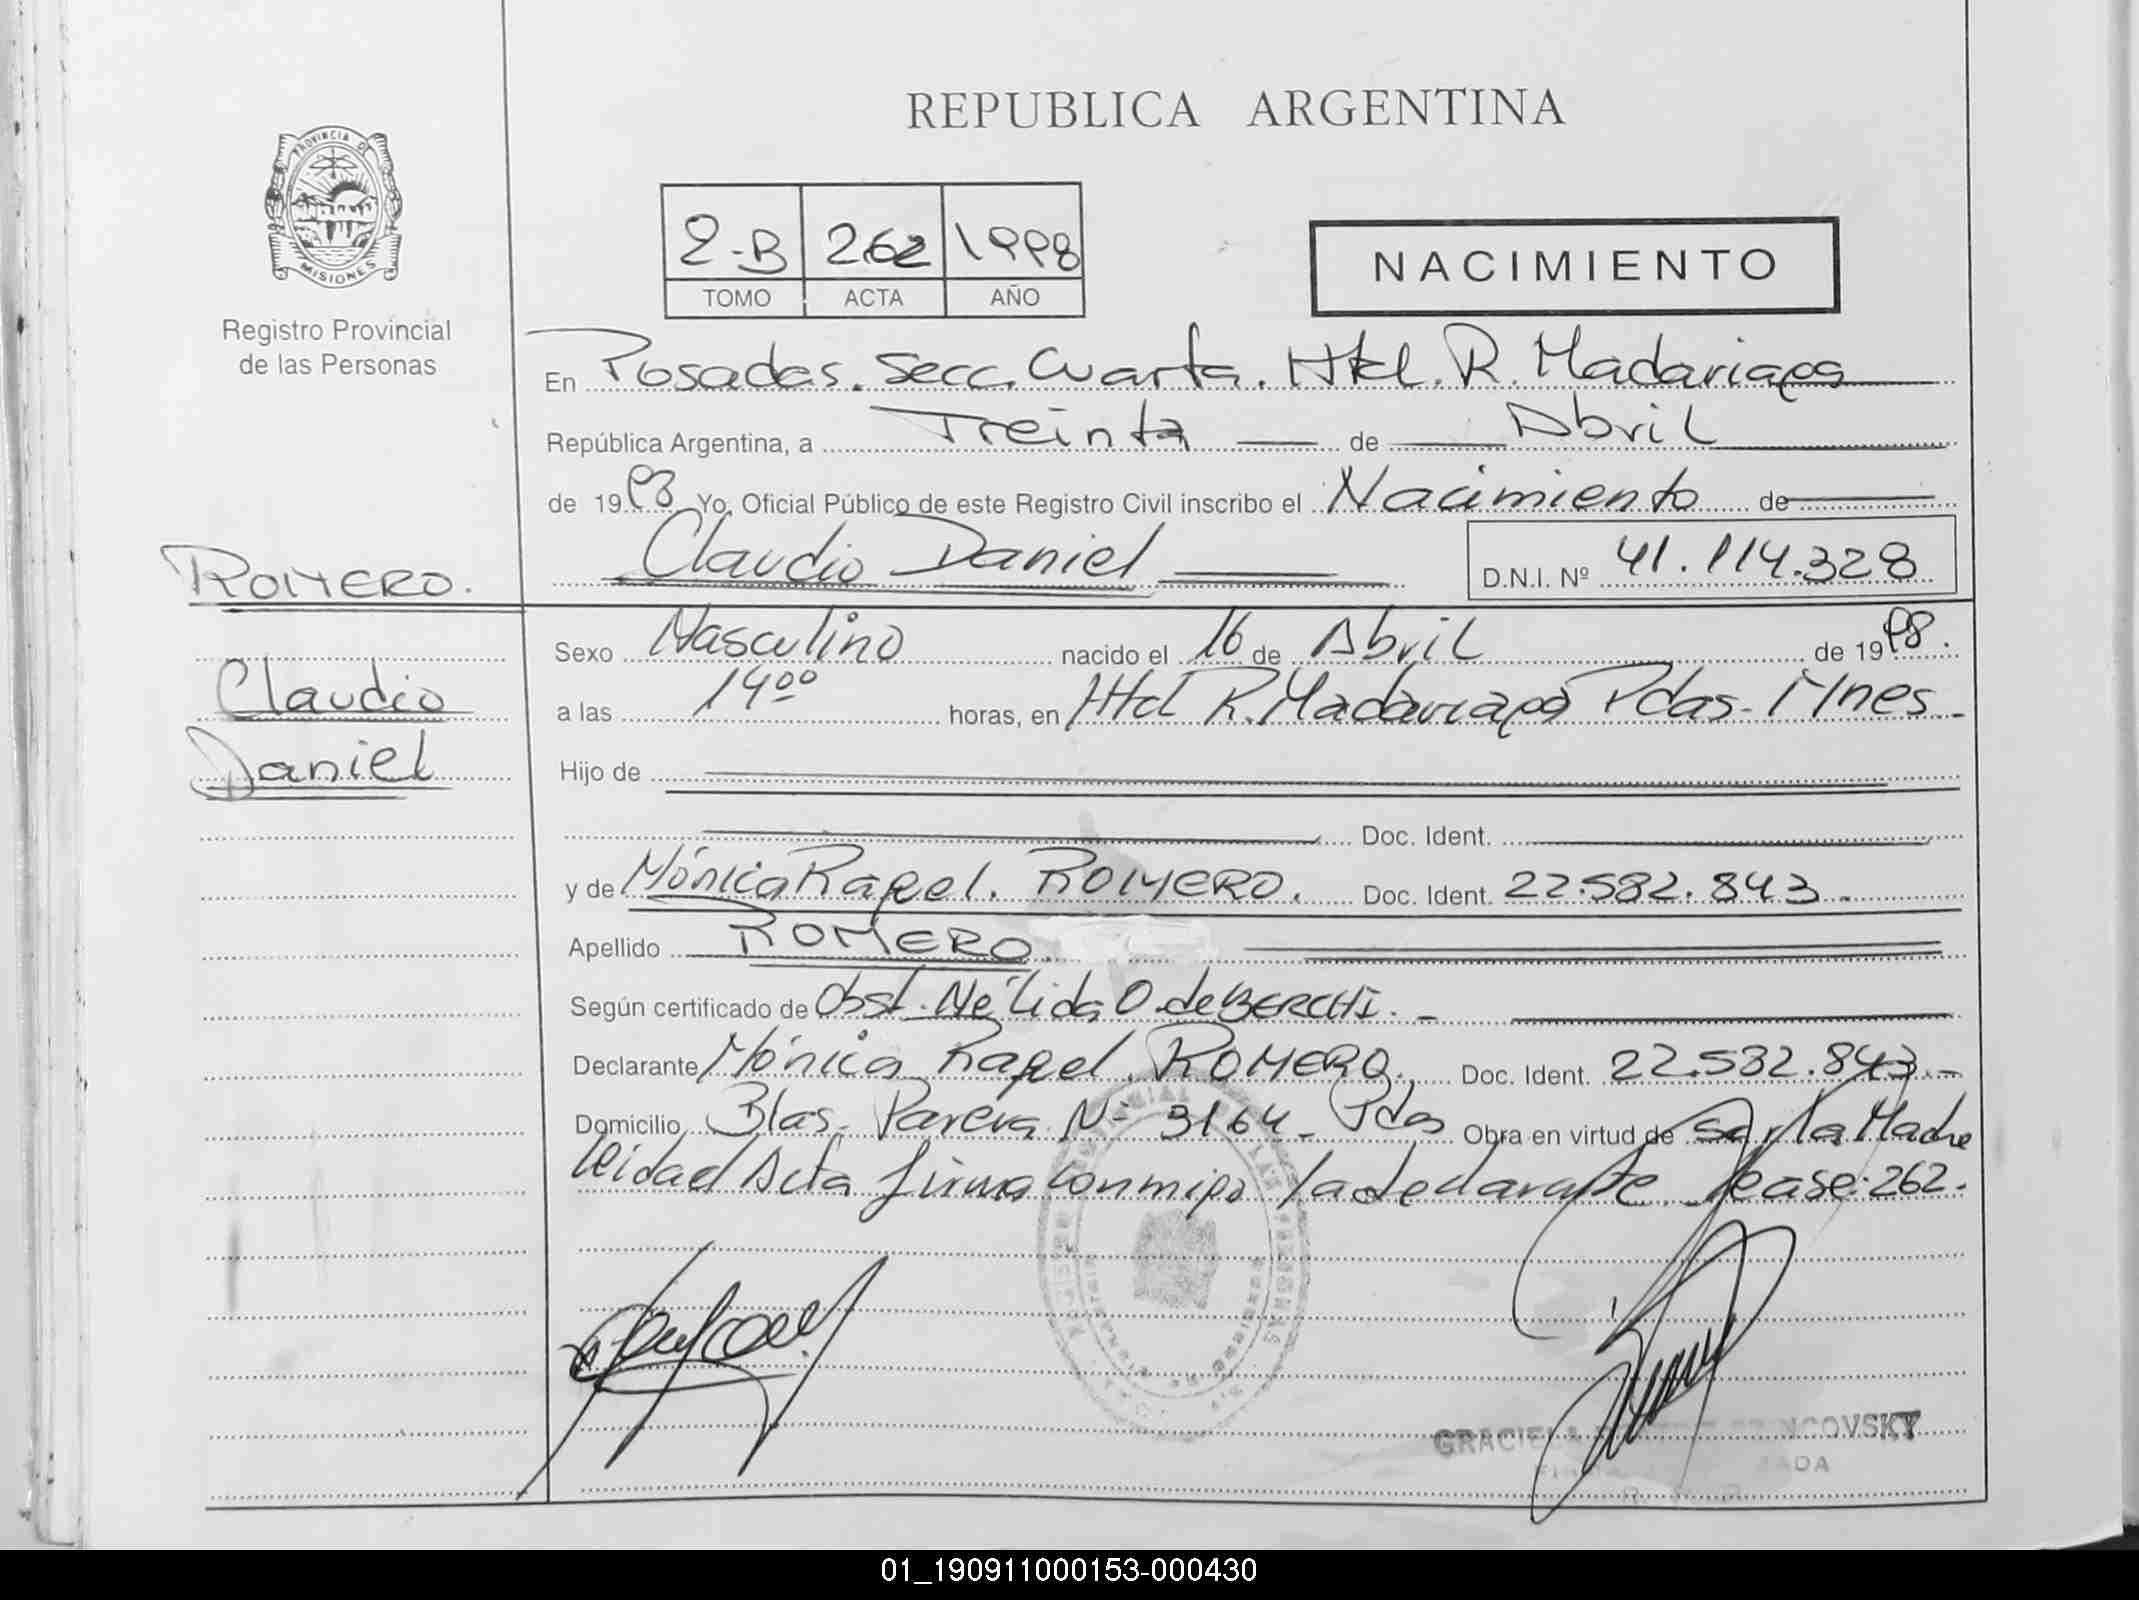 REPUBLICA ARGENTINA
PROVINCIA D
MISIONES
Registro Provincial
de las Personas
2-B 262 1998
TOMO ACTA AÑO
NACIMIENTO
En Posadas. Secc. Cuarta. Htal. R. Madariaga
República Argentina, a Treinta de Abril
de 1998 Yo, Oficial Público de este Registro Civil inscribo el Nacimiento de
Claudio Daniel D.N.I. Nº 41.114.328
ROMERO.
Claudio
Daniel
Sexo Masculino nacido el 16 de Abril de 1998.
a las 14ºº horas, en Htal R. Madariaga Pdas. Mnes.
Hijo de
Doc. Ident.
y de Mónica Raqel. ROMERO. Doc. Ident. 22.582.843.
Apellido ROMERO
Según certificado de Obst. Nélida O. de BERCHI.
Declarante Mónica Raqel. ROMERO. Doc. Ident. 22.582.843.-
Domicilio Blas Parera Nº 3164 - Pdas Obra en virtud de ser la Madre
Leidad Acta firma conmigo la declarante. Lease: 262.
GRACIELA
ADA
01_190911000153-000430